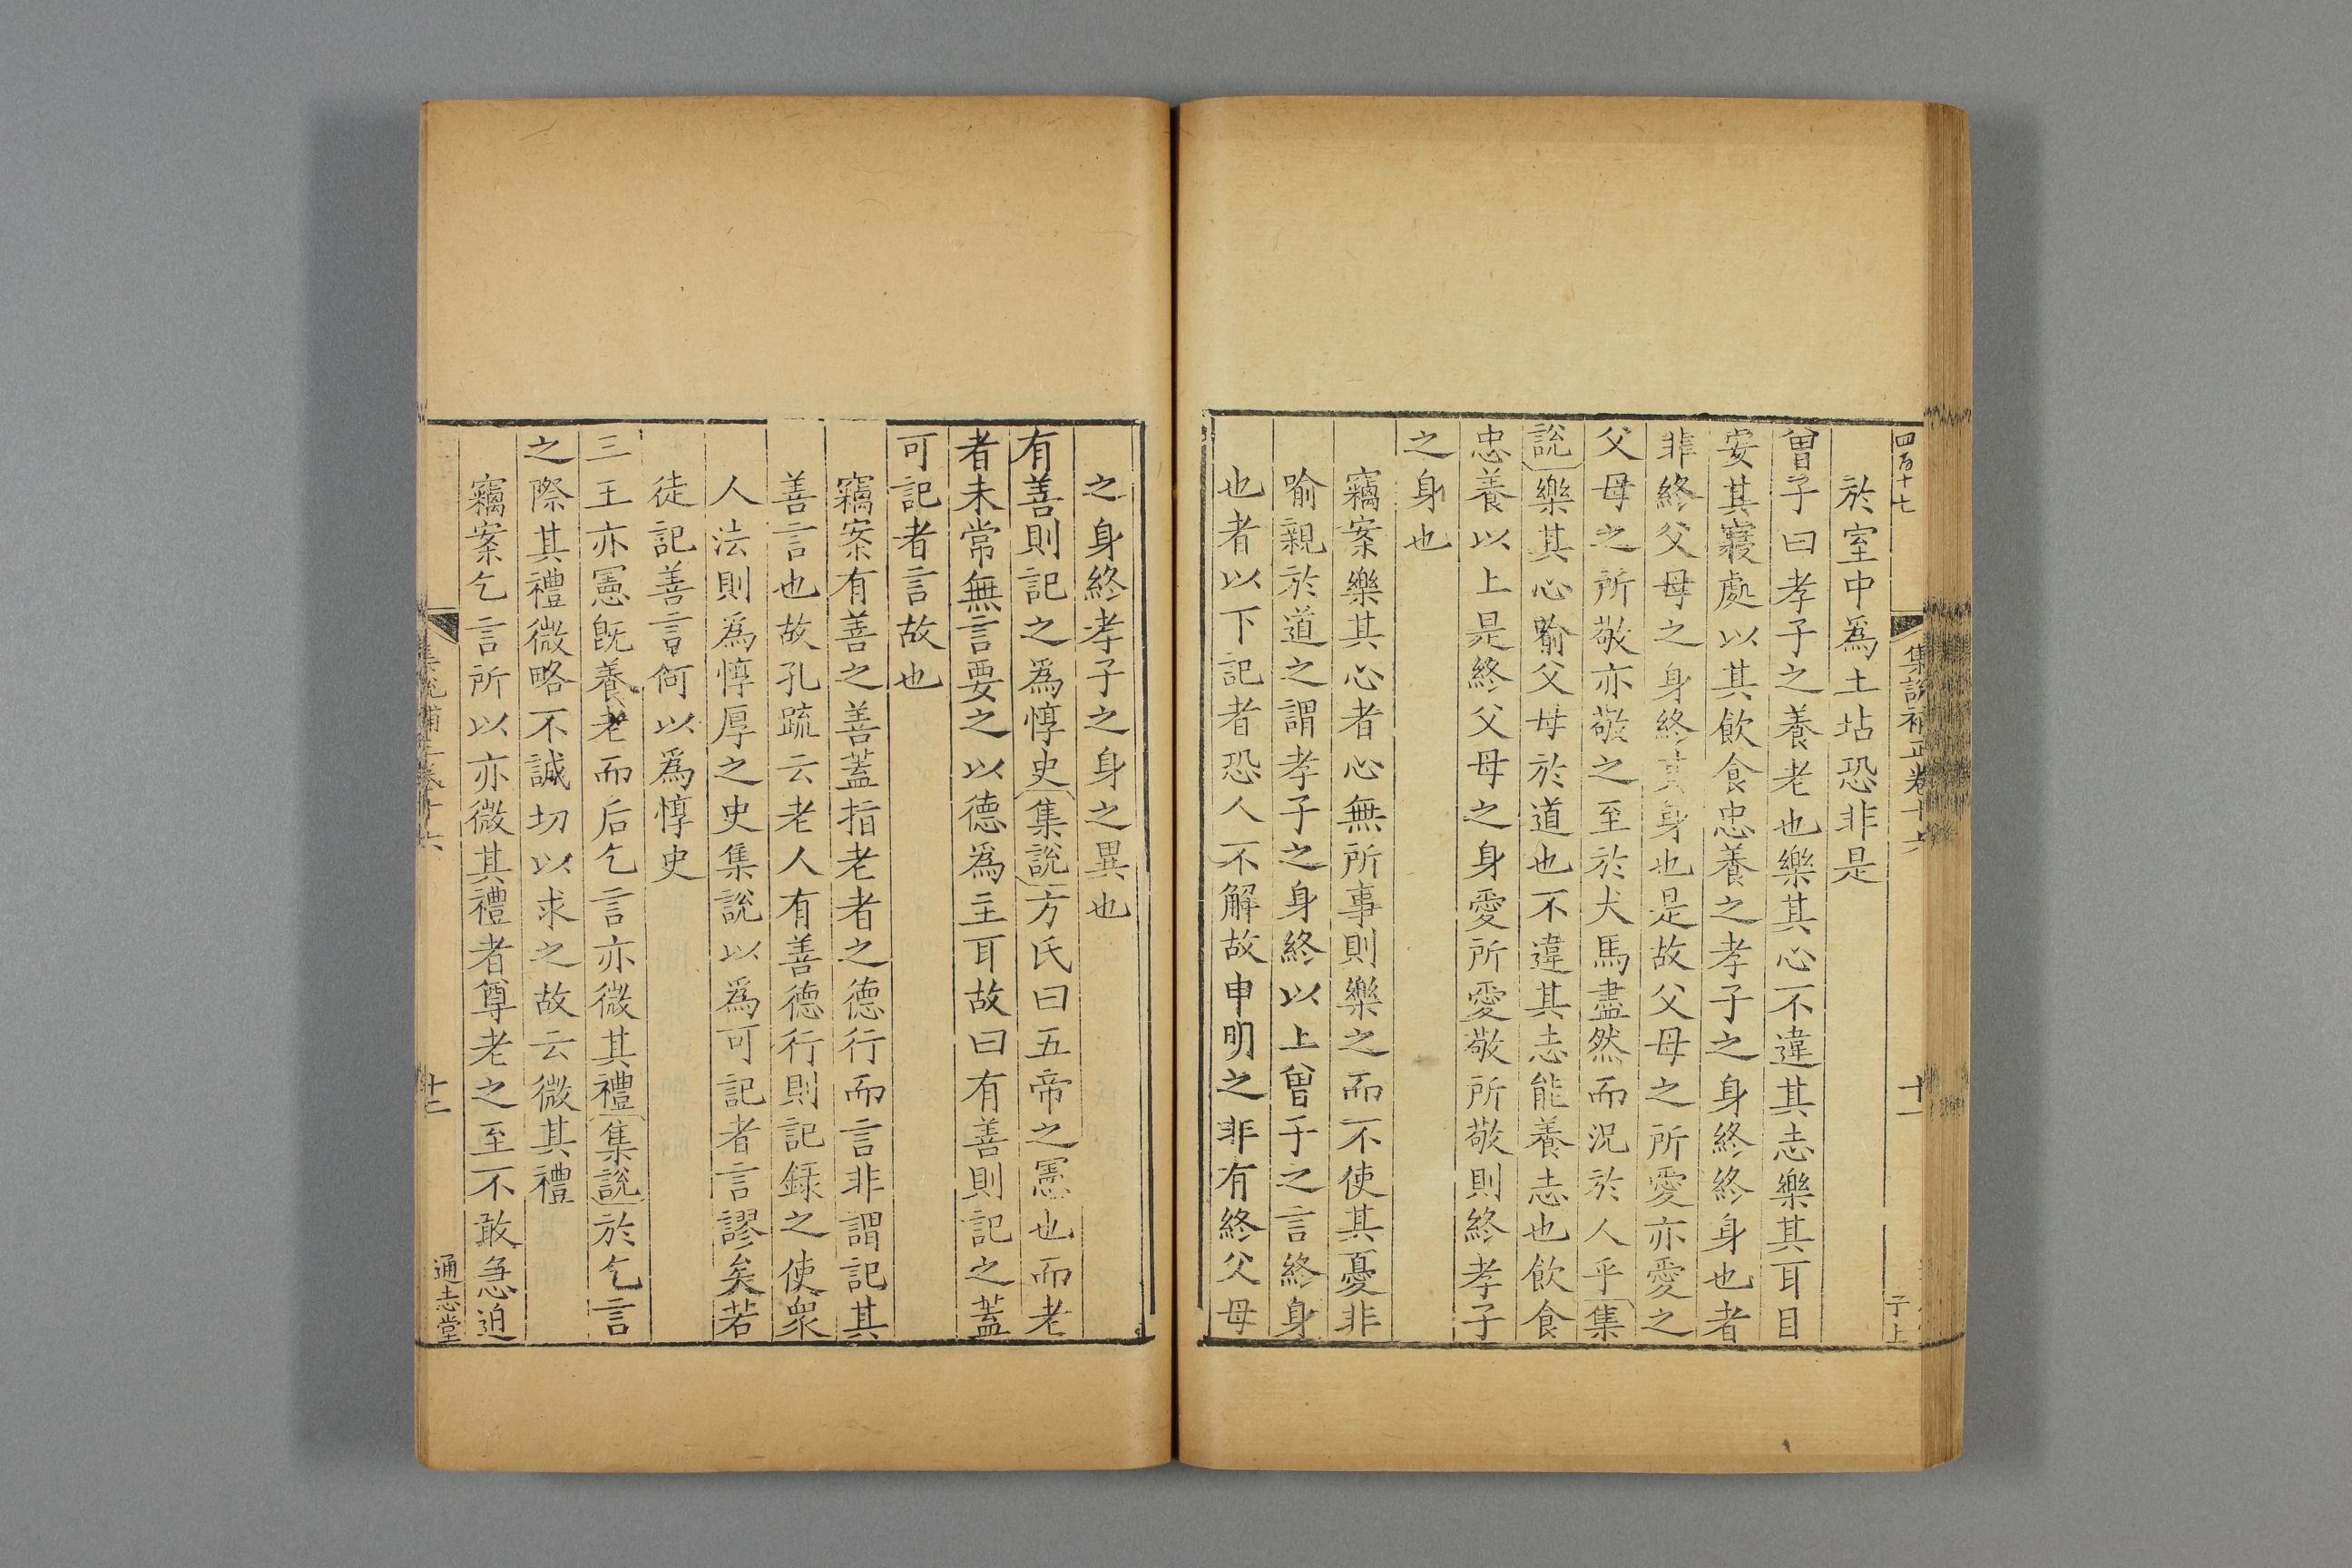 四百十七
集說補正卷十六
十一
于上
於室中為土坫恐非是
曾子曰孝子之養老也樂其心不違其志樂其耳目
安其寢處以其飲食忠養之孝子之身終終身也者
非終父母之身終其身也是故父母之所愛亦愛之
父母之所敬亦敬之至於犬馬盡然而況於人乎集
說樂其心喻父母於道也不違其志能養志也飲食
忠養以上是終父母之身愛所愛敬所敬則終孝子
之身也
竊案樂其心者心無所事則樂之而不使其憂非
喻親於道之謂孝子之身終以上曾子之言終身
也者以下記者恐人不解故申明之非有終父母
之身終孝子之身之異也
有善則記之為惇史集說方氏曰五帝之憲也而老
者未常無言要之以德為主耳故曰有善則記之蓋
可記者言故也
竊案有善之善蓋指老者之德行而言非謂記其
善言也故孔疏云老人有善德行則記錄之使衆
人法則為惇厚之史集說以為可記者言謬矣若
徒記善言何以為惇史
三王亦憲旣養老而后乞言亦微其禮集說於乞言
之際其禮微略不誠切以求之故云微其禮
竊案乞言所以亦微其禮者尊老之至不敢急迫
集說補正卷十六
十二
通志堂